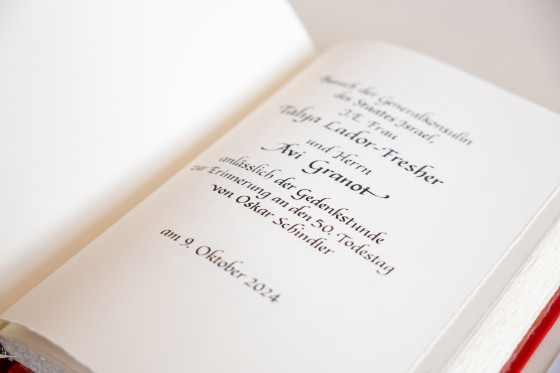 Besuch der Generalkonsulin
des Staates Israel,
I.E. Frau
Talya Lador-Fresher
und Herrn
Avi Granot
anlässlich der Gedenkstunde
zur Erinnerung an den 50. Todestag
von Oskar Schindler
am 9. Oktober 2024